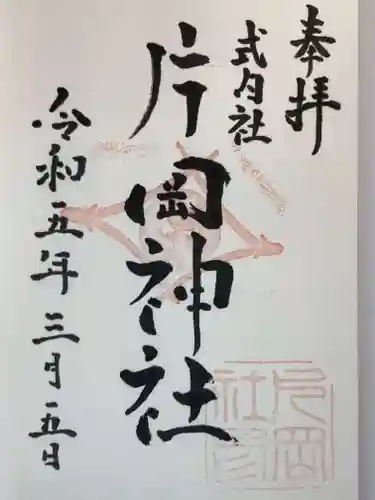 奉拝
式内社
片岡神社
令和五年三月五日